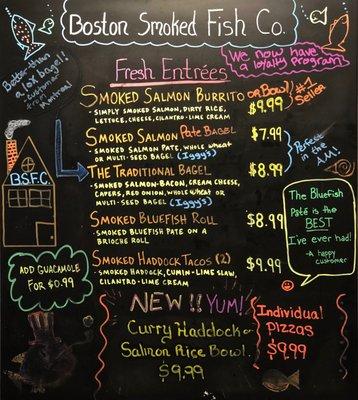 Boston Smoked Fish Co.
We now have
a loyalty program
Better than
a lox bagel!!
customer
from
Montreal
Fresh Entrées
Smoked Salmon Burrito or Bowl! $9.99
#1 Seller
- Simply Smoked Salmon, Dirty Rice,
Lettuce, Cheese, Cilantro-Lime Cream
Smoked Salmon Pate Bagel $7.99
- Smoked Salmon Pate, Whole Wheat
or Multi-Seed Bagel (Iggy's)
Perfect
in the
AM!
The Traditional Bagel $8.99
- Smoked Salmon-Bacon, Cream Cheese,
Capers, Red Onion, Whole Wheat or
Multi-Seed Bagel (Iggy's)
B.S.F.C.
Smoked Bluefish Roll $8.99
- Smoked Bluefish Pate on a
Brioche Roll
The Bluefish
Paté is the
BEST
I've ever had!
- A happy
customer
Smoked Haddock Tacos (2) $9.99
- Smoked Haddock, Cumin-Lime Slaw,
Cilantro-Lime Cream
Add Guacamole
for $0.99
NEW!! YUM!
Curry Haddock or
Salmon Rice Bowl.
$9.99
Individual
Pizzas
$9.99